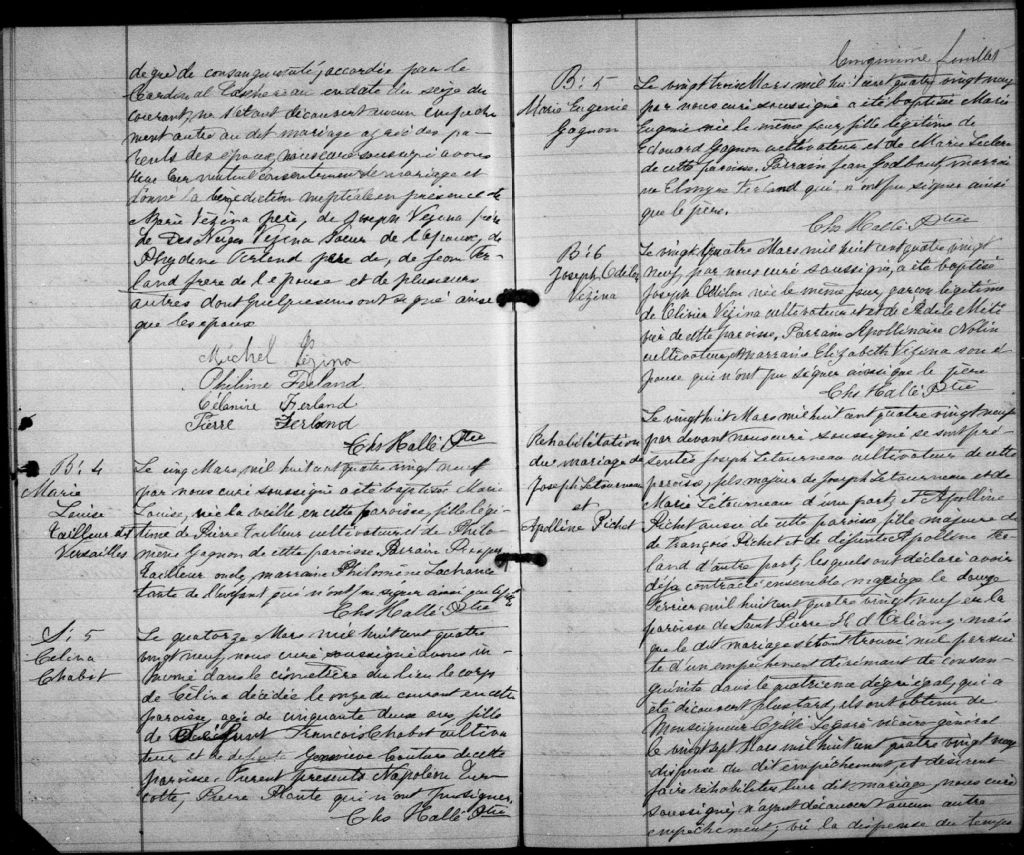 degré de consanguinité, accordée par le
Cardinal Taschereau en date du seize du
courant, ne s'étant découvert aucun empêche
ment autre au dit mariage agréé des pa-
rents des époux, nous curé soussigné avons
reçu leur mutuel consentement de mariage et
donné la bénédiction nuptiale en présence de
Marie Vézina père, de Joseph Vézina frère
de Des Neiges Vézina Soeur de l'époux, de
Phydème Ferland père de, de Jean Fer-
land frère de l'épouse et de plusieurs
autres dont quelques uns ont signé ainsi
que les époux
Michel Vézina
Philime Ferland
Célanire Ferland
Pierre Ferland
Chs Hallé Ptre
B: 4
Marie
Louise
Tailleur dit
Versailles
Le cinq Mars, mil huit cent quatre vingt neuf
par nous curé soussigné a été baptisée Marie
Louise, née la veille en cette paroisse, fille légi-
time de Pierre Tailleur cultivateur et de Philo-
mène Gagnon de cette paroisse. Parrain Prosper
Tailleur oncle, marraine Philomène Lachance
tante de l'enfant qui n'ont pu signer ainsi que le père
Chs Hallé Ptre
S: 5
Célina
Chabot
Le quatorze Mars mil huit cent quatre
vingt neuf, nous curé soussigné avons in-
humé dans le cimetière du lieu le corps
de Célina décédée le onze du courant en cette
paroisse, agée de cinquante deux ans fille
de François Chabot cultiva
teur et de défunte Geneviève Couture de cette
paroisse. Furent presents Napoléon Tur-
cotte, Pierre Plante qui n'ont pu signer.
Chs Hallé Ptre
Cinquième Feuillet
B: 5
Marie Eugénie
Gagnon
Le vingt trois Mars mil huit cent quatre vingt neuf
par nous curé soussigné a été baptisée Marie
Eugénie née le même jour, fille légitime de
Edouard Gagnon cultivateur et de Marie Leclerc
de cette paroisse. Parrain Jean Godbout, marrai
ne Elmyre Ferland qui n'ont pu signer ainsi
que le père.
Chs Hallé Ptre
B: 6
Joseph Odelon
Vézina
Le vingt quatre Mars mil huit cent quatre vingt
neuf, par nous curé soussigné, a été baptisé
Joseph Odilon né le même jour, garçon légitime
de Olivier Vézina cultivateur et de Adèle Méti
vier de cette paroisse. Parrain Apollinaire Nolin
cultivateur, Marraine Elizabeth Vézina son é-
pouse qui n'ont pu signer ainsi que le père
Chs Hallé Ptre
Rehabilitation
du mariage de
Joseph Letourneau
et
Apolline Pichet
Le vingt huit Mars mil huit cent quatre vingt neuf
par devant nous curé soussigné se sont pré-
sentés Joseph Letourneau cultivateur de cette
paroisse, fils majeur de Joseph Letourneau et de
Marie Létourneau d'une part, et Apolline
Pichet aussi de cette paroisse fille majeure de
de François Pichet et de défunte Apolline Fer-
land d'autre part, lesquels ont déclaré avoir
déja contracté ensemble mariage le douze
Février mil huit cent quatre vingt neuf en la
paroisse de Saint Pierre I. d'Orléans, mais
que le dit mariage s'étant trouvé nul par sui
te d'un empêchement dirimant de consan-
guinité dans le quatrième degré égal, qui a
été découvert plus tard, ils ont obtenu de
Monseigneur Cyrille Legaré vicaire général
le vingt sept Mars mil huit cent quatre vingt neuf
dispense du dit empêchement, et désirent
faire réhabiliter leur dit mariage, nous curé
soussigné, n'ayant découvert aucun autre
empêchement, vû la dispense du temps